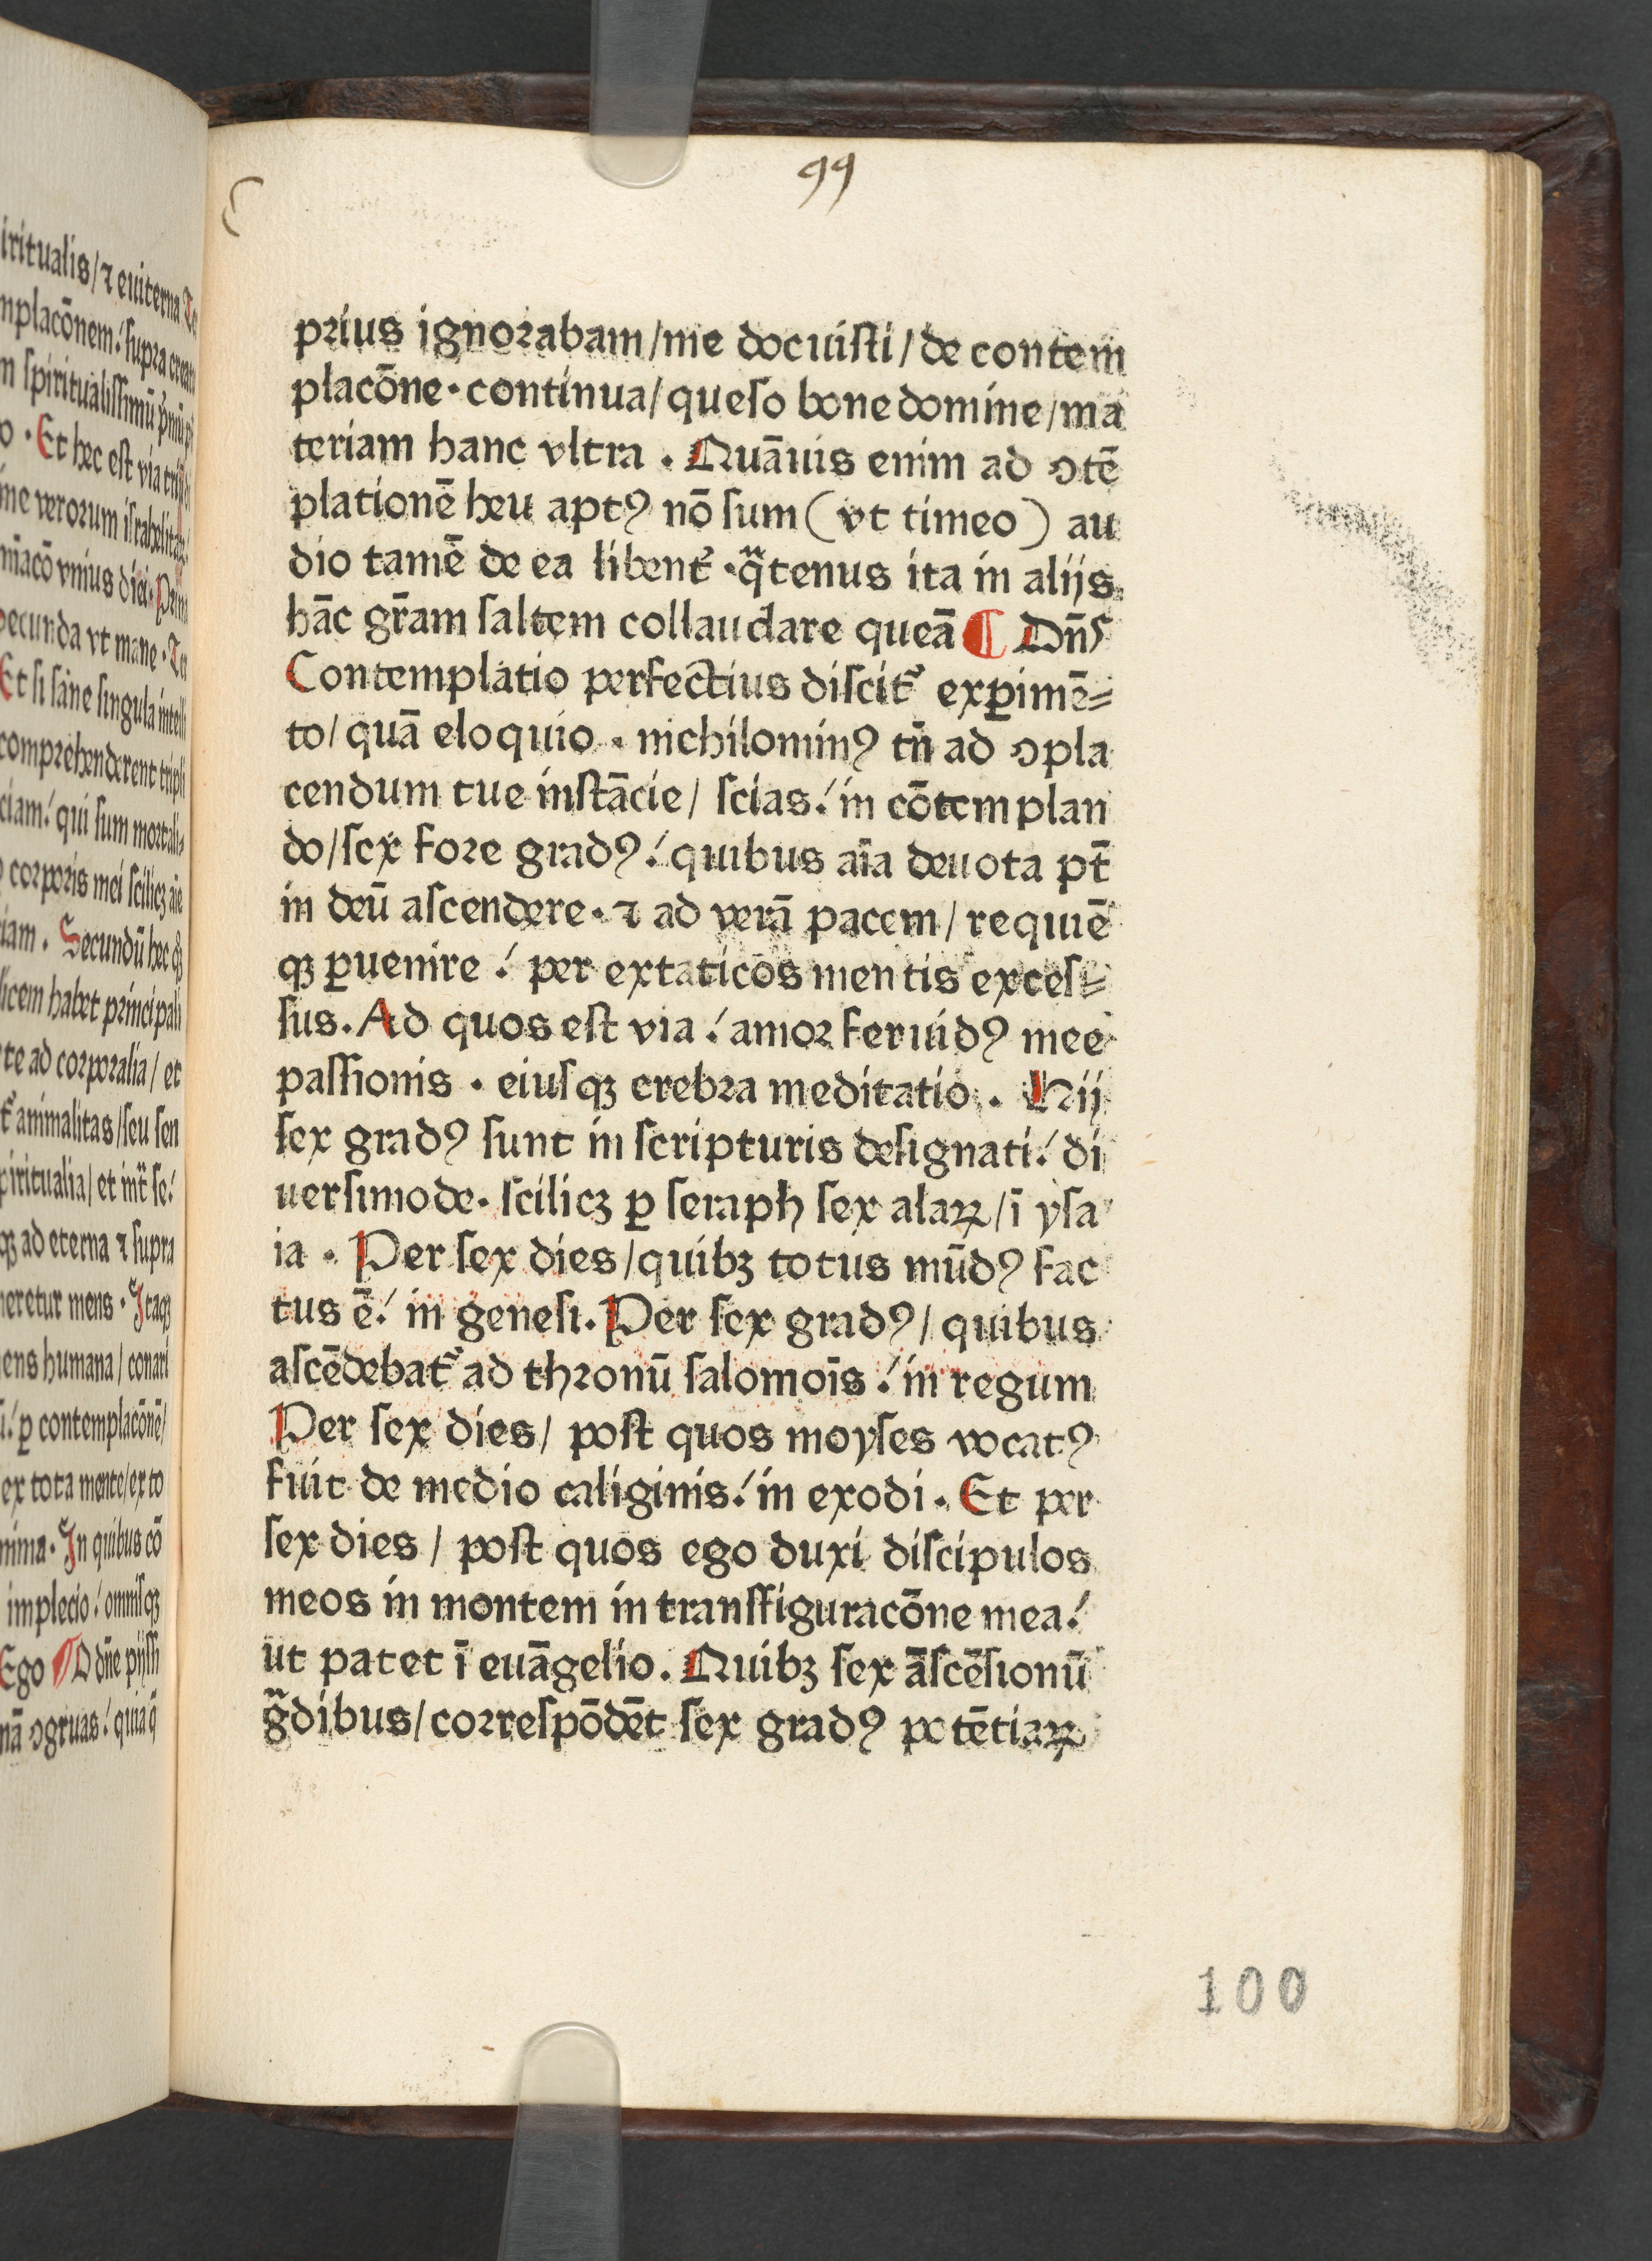 99
prius ignorabam/me docuisti/de contem
placōne·continua/queso bone domine/ma
teriam hanc vltra. Quāuis enim ad ꝯtē
plationē heu aptꝰ nō sum (vt timeo) au
dio tamē de ea libent᷑·qᷓtenus ita in alijs
hāc gr̄am saltem collaudare queā ¶ Dn̄s
Contemplatio perfectius discit᷑ exꝑimē⸗
to/quā eloquio. nichilominꝰ tn̄ ad ꝯpla
cendum tue instācie/ scias! in cōtemplan
do/sex fore gradꝰ! quibus aīa deuota pt̄
in deū ascendere·⁊ ad verā pacem/requiē
qꝫ ꝑuenire! per extaticos mentis exces⸗
sus. Ad quos est via! amor feruidꝰ mee
passionis. eiusqꝫ crebra meditatio. Hij
sex gradꝰ sunt in scripturis designati! di
uersimode. scilicꝫ ꝑ seraph sex alaꝝ/ī ysa
ia. Per sex dies/quibꝫ totus mūdꝰ fac
tus ē! in genesi. Per sex gradꝰ/quibus
ascēdebat᷑ ad thronū salomoīs! in regum
Per sex dies/ post quos moyses vocatꝰ
fuit de medio caliginis! in exodi. Et per
sex dies/ post quos ego duxi discipulos
meos in montem in transfiguracōne mea!
ut patet ī euāgelio. Quibꝫ sex āscēsionū
gᷓdibus/correspōdēt sex gradꝰ potētiaꝝ
100
iritualis/⁊ euiterna
mplacōnem! supra
m spiritualissimū
o. Et hec est via
me verorum israhelitaꝝ
m̄acō vnius diei. Prim
secunda vt mane.
Et si sane singula intelli
comprehenderent tripli
ciam! qui sum mortali⸗
corporis mei scilicꝫ aīe
iam. Secundū hec
licem habet principali
te ad corporalia/ et
t᷑ animalitas/seu sen
piritualia/et int᷑ se!
qꝫ ad eterna ⁊ supra
neretur mens. Itaqꝫ
ens humana/conari
ꝑ contemplacōnē/
ex tota mente/ex to
nima. In quibus cō
implecio! omnisqꝫ
Ego ¶ O dn̄e pijssi
nā ꝯgruas! quia